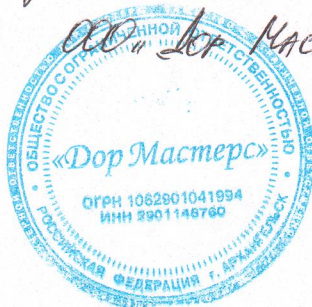 ООО „ Дор Мас
ОБЩЕСТВО С ОГРАНИЧЕННОЙ ОТВЕТСТВЕННОСТЬЮ
«Дор Мастерс»
ОГРН 1062901041994
ИНН 2901148760
РОССИЙСКАЯ ФЕДЕРАЦИЯ г. АРХАНГЕЛЬСК